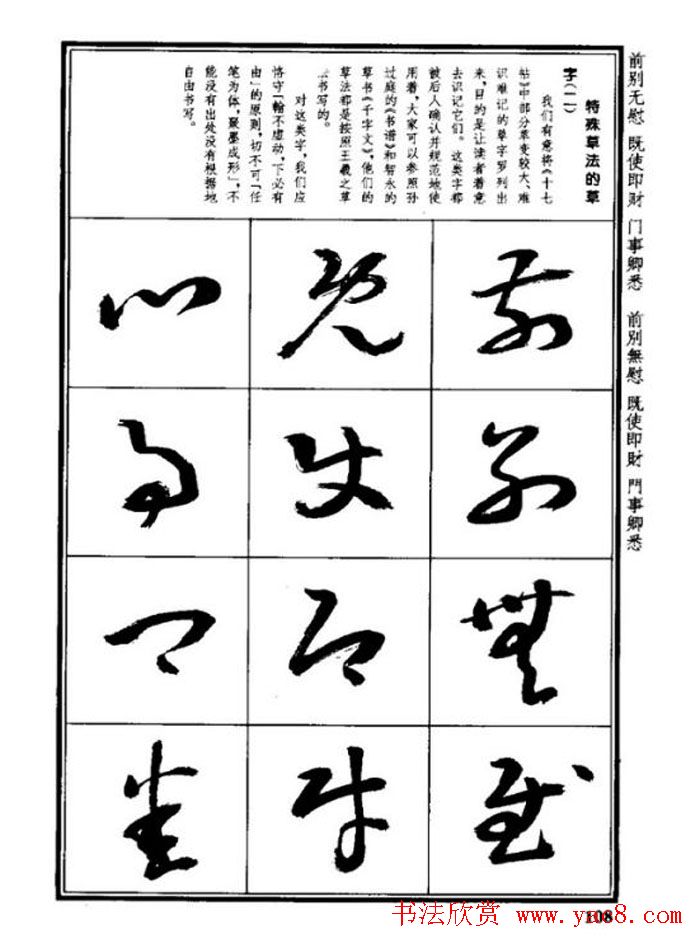 前别无慰 既使即财 门事卿悉 前別無慰 既使即財 門事卿悉
特殊草法的草
字(二)
我们有意将《十七
帖》中部分草变较大、难
识难记的草字罗列出
来,目的是让读者着意
去识记它们。这类字都
被后人确认并规范地使
用着,大家可以参照孙
过庭的《书谱》和智永的
草书《千字文》,他们的
草法都是按照王羲之草
法书写的。
对这类字,我们应
恪守「翰不虚动,下必有
由」的原则,切不可「任
笔为体,聚墨成形」,不
能没有出处没有根据地
自由书写。
前別無慰
既使即財
門事卿悉
108
书法欣赏 www.yac8.com